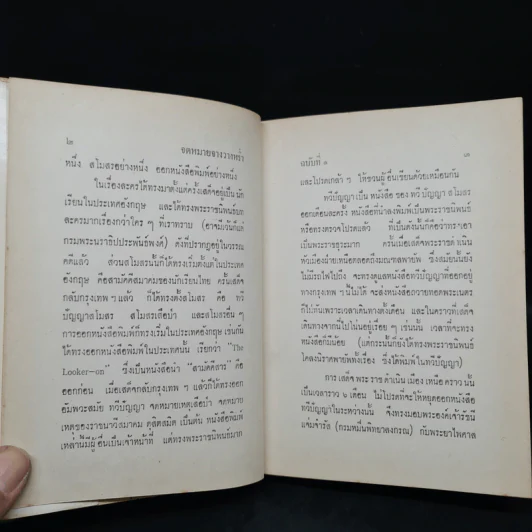 ๒
จดหมายจางวางหร่ำ
หนึ่ง สโมสรอย่างหนึ่ง ออกหนังสือพิมพ์อย่างหนึ่ง
ในเรื่องละครได้ทรงมาตั้งแต่ครั้งเสด็จอยู่เป็นนัก
เรียนในประเทศอังกฤษ และได้ทรงพระราชนิพนธ์บท
ละครมากเรื่องกว่าใคร ๆ ที่เราทราบ (อาจมเว้นก็แต่
กรมพระนราธิปประพันธ์พงศ์) ดังที่ปรากฏอยู่ในวรรณ
คดีแล้ว ส่วนสโมสรนั้นก็ได้ทรงเริ่มตั้งแต่ในประเทศ
อังกฤษ คือสามัคคีสมาคมของนักเรียนไทย ครั้นเสด็จ
กลับกรุงเทพ ฯ แล้ว ก็ได้ทรงตั้งสโมสร คือ ทวี
ปัญญาสโมสร สโมสรเสือป่า และสโมสรอื่น ๆ
การออกหนังสือพิมพ์ก็ทรงเริ่มในประเทศอังกฤษ เช่นกัน
ได้ทรงออกหนังสือพิมพ์ในประเทศนั้น เรียกว่า "The
Looker-on" ซึ่งเป็นหนังสือนำ "สามัคคีสาร" คือ
ออกก่อน เมื่อเสด็จกลับกรุงเทพ ฯ แล้วก็ได้ทรงออก
อีกพวะสมัย ทวีปัญญา จดหมายเหตุเสือป่า จดหมาย
เหตุของราชนาวีสมาคม ดุสิตสมิต เป็นต้น หนังสือพิมพ์
เหล่านี้มีผู้อื่นเป็นเจ้าหน้าที่ แต่ทรงพระราชนิพนธ์มาก
ฉบับที่ ๑
๓
และโปรดเกล้า ฯ ให้ชวนผู้อื่นเขียนด้วยเหมือนกัน
ทวีปัญญาเป็น หนังสือ ของ ทวี ปัญญา สโมสร
ออกเดือนละครั้ง หนังสือที่น่าลงพิมพ์เป็นพระราชนิพนธ์
หรือทรงตรวจโปรดแล้ว ที่เป็นดังนั้นก็คือว่าทรงเอา
เป็นพระราชธุระมาก ครั้นเมื่อเสด็จพระราชดำเนิน
หัวเมืองฝ่ายเหนือตลอดถึงมณฑลพายัพ ซึ่งสมัยนั้นยัง
ไม่มีรถไฟไปถึง จะทรงดูแลหนังสือทวีปัญญาที่ออกอยู่
ทางกรุงเทพ ฯ นี้ไม่ได้ จะส่งหนังสือถวายทอดพระเนตร
ก็ไปทันเพราะเวลาเดินทางตั้งเดือน และในคราวที่เสด็จ
เดินทางจากที่ไปในป่านอยู่เรื่อย ๆ เช่นนั้น เวลาที่จะทรง
หนังสือก็มีน้อย (แต่กระนั้นก็ยังได้ทรงพระราชนิพนธ์
โคลงนิราศพายัพทั้งเรื่อง ซึ่งได้พิมพ์ในทวีปัญญา)
การ เสด็จ พระ ราช ดำเนิน เมือง เหนือ คราว นั้น
เป็นเวลาราว ๖ เดือน ไม่โปรดที่จะให้หยุดออกหนังสือ
ทวีปัญญาในระหว่างนั้น จึงทรงมอบพระองค์เจ้ารัชนี
แจ่มจำรัส (กรมหมื่นพิทยาลงกรณ์) กับพระยาไพศาล